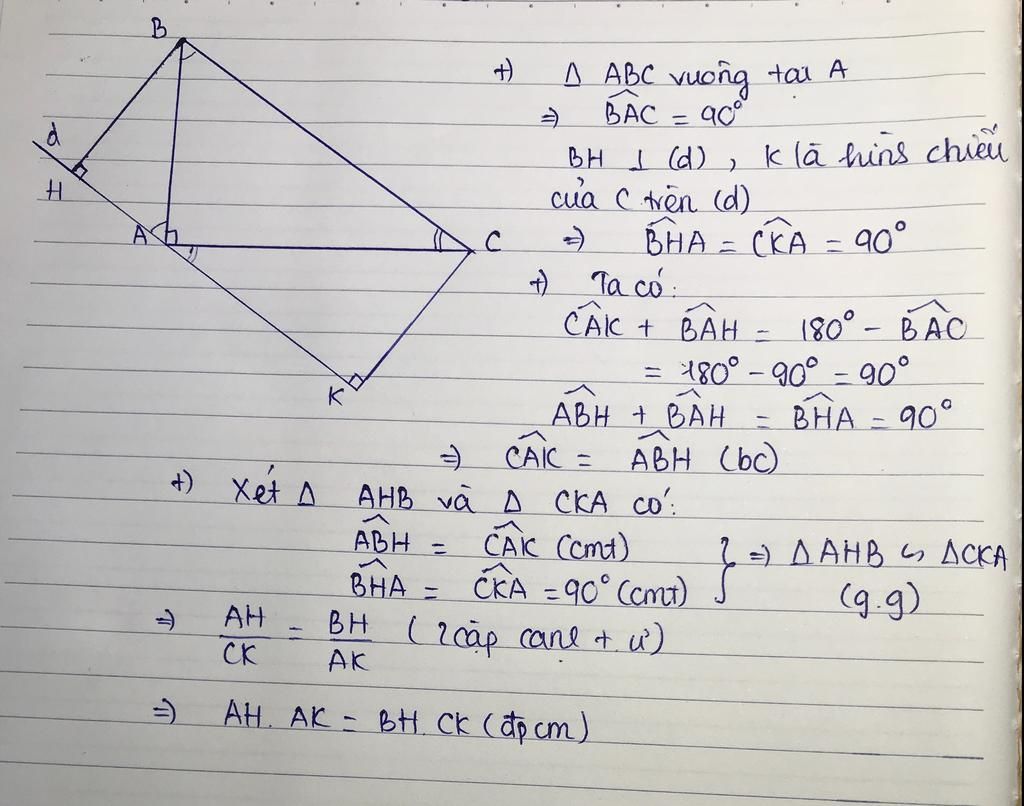 B
d
H
A
C
K
+) Δ ABC vuông tại A
⇒ \widehat{BAC} = 90°
BH ⊥ (d), K là hình chiếu
của C trên (d)
⇒ \widehat{BHA} = \widehat{CKA} = 90°
+) Ta có:
\widehat{CAK} + \widehat{BAH} = 180° - \widehat{BAC}
= 180° - 90° = 90°
\widehat{ABH} + \widehat{BAH} = \widehat{BHA} = 90°
⇒ \widehat{CAK} = \widehat{ABH} (bc)
+) Xét Δ AHB và Δ CKA có:
\widehat{ABH} = \widehat{CAK} (cmt)
\widehat{BHA} = \widehat{CKA} = 90° (cmt) } ⇒ ΔAHB ∽ ΔCKA
(g.g)
⇒ AH/CK = BH/AK (2 cặp cạnh t.ư)
⇒ AH. AK = BH. CK (đpcm)